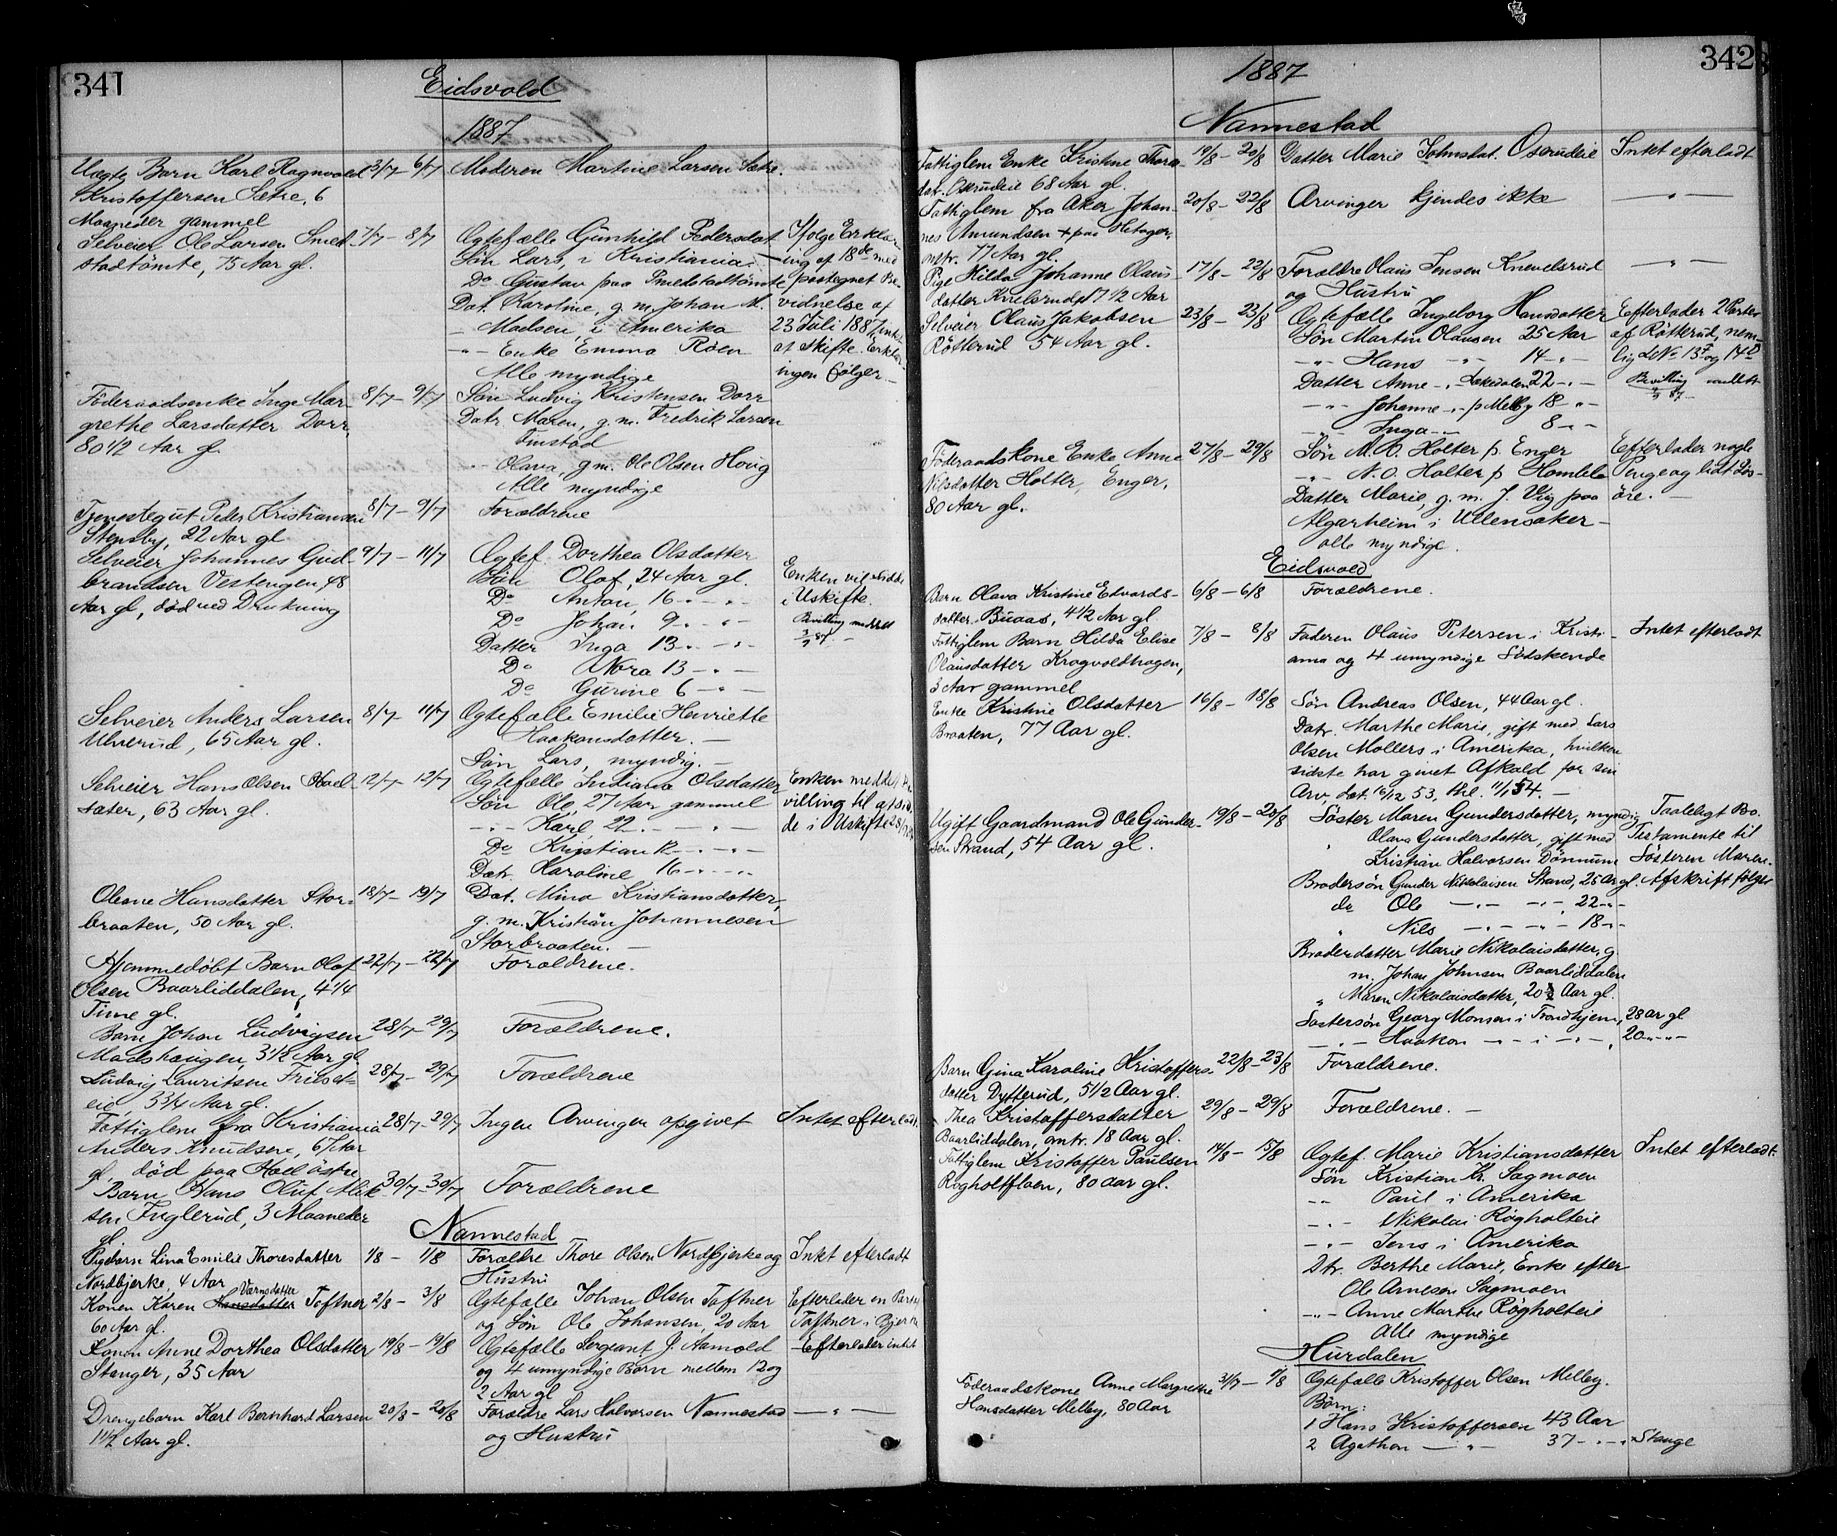 341
Eidsvold
1887
Uægte Barn Karl Ragnvald 3/7 - 6/7 Moderen Martine Larsen Sætre
Kristoffersen Sætre, 6
Maaneder gammel
Selveier Ole Larsen Smed- 7/7 - 8/7 Ægtefælle Gunhild Pedersdat. Ifølge Erklær-
stadtömte, 75 Aar gl. Søn Lars, i Kristiania ing af 18de med
Do Gustav paa Smedstadtömte paategnet Be-
Dat. Karoline, g. m. Johan M. vidnelse af
Madsen, i Amerika 23 Juli 1887, intet
-"- Enke Emma Röen at skifte. Erklær-
Alle myndige ingen følger
Föderaadsenke Inge Mar- 8/7 - 9/7 Søn Ludvig Kristensen Dorr
grethe Larsdatter Dorr, Datr Maren, g. m. Fredrik Larsen
80 1/2 Aar gl. Finstad
-"- Olava, g. m. Ole Olsen Houg
Alle myndige
Tjenestegut Peder Kristiansen 8/7 - 9/7 Forældrene
Stensby, 22 Aar gl
Selveier Johannes Gud- 9/7 - 11/7 Ægtef. Dorthea Olsdatter
brandsen Vestengen, 48 Søn Olaf, 24 Aar gl. Enken vil sidde
Aar gl, död ved Drukning Do Anton, 16 -"- i Uskifte.
Do Johan 9 -"- Bevilling meddelt
Datter Inga 13 -"- 3/9 87
Do Nora 13 -"-
Do Gurine 6 -"-
Selveier Anders Larsen 8/7 - 11/7 Ægtefælle Emilie Henriette
Ulverud, 65 Aar gl. Haakonsdatter.
Søn Lars, myndig.
Selveier Hans Olsen Hoel- 12/7 - 12/7 Ægtefælle Indiana Olsdatter Enken meddelt Be-
sæter, 63 Aar gl. Søn Ole, 27 Aar gammel villing til at sid-
-"- Karl, 22 -"- de i Uskifte
Do Kristian 12 -"-
Datr. Karoline 16 -"-
Olene Hansdatter Stor- 18/7 - 19/7 Dat. Mina Kristiansdatter,
braaten, 50 Aar gl. g. m. Kristian Johannesen
Storbraaten.
Hjemmedöbt Barn Olaf 22/7 - 22/7 Forældrene.
Olsen Baarliddalen, 4 1/4
Time gl.
Barn Johan Ludvigsen 28/7 - 29/7 Forældrene.
Madshaugen, 3 1/2 Aar gl
Ludvig Lauritsen 28/7 - 29/7 Forældrene
eie, 3 3/4 Aar gl.
Fattiglem fra Kristiania 28/7 - 29/7 Ingen Arvinger opgivet Intet efterladt.
Anders Knudsen, 67 Aar
gl, död paa Hoel östre
Barn Hans Oluf 30/7 - 30/7 Forældrene
sen Fuglerud, 3 Maaneder
gl
Nannestad
Pigebarn Lina Emilie Thoresdatter 1/8 - 1/8 Forældre Thore Olsen Nordbjerke og Intet efterladt
Nordbjerke, 4 Aar Hustru
Værnsdatter
Konen Karen Hansdatter Toftner 2/8 - 3/8 Ægtefælle Johan Olsen Toftner Efterlader en Part af
60 Aar gl. og Søn Ole Johansen, 20 Aar Toftner i Bjerke
Konen Anne Dorthea Olsdatter 19/8 - 19/8 Ægtefælle Sergeant J. Aamold Efterlader intet
Stanger, 35 Aar og 4 umyndige Børn mellem 12 og
2 Aar gl
Drengebarn Karl Bernhard Larsen 20/8 - 20/8 Forældre Lars Halvorsen Nannestad -"-
1 1/2 Aar gl. og Hustru
342
1887
Nannestad
Fattiglem Enke Kristine Thores- 19/8 - 20/8 Datter Marie Johnsdat. Oserudeie Intet efterladt
datr. Oserudeie 68 Aar gl.
Fattiglem fra Aker Johan- 20/8 - 22/8 Arvinger kjendes ikke -"-
nes Amundsen + paa
omtr. 77 Aar gl.
Pige Hilda Johanne Olaus- 17/8 - 22/8 Forældre Olaus Jensen Knevelsrud -"-
datter 17 1/2 Aar og Hustru
Selveier Olaus Jakobsen 23/8 - 23/8 Ægtefælle Ingeborg Hansdatter Efterlader 2 Parter
Rötterud 54 Aar gl. Søn Martin Olausen 25 Aar af Rötterud, nem-
-"- Hans -"- 14 -"- lig
Datter Anne -"- 22 -"- Bevilling meddelt
-"- Johanne -"- p. Melby 18 -"- 87
-"- Inga -"- 8 -"-
Föderaadskone Enke Anne 27/8 - 29/8 Søn M. O. Holter p. Enger Efterlader nogle
Nilsdatter Holter, Enger, -"- N. O. Holter p. Homble Penge og lidt Løs-
80 Aar gl. Datter Marie, g. m. J. Vig paa öre.
Algarheim i Ullensaker
alle myndige.
Eidsvold
Barn Olava Kristine Edvards- 6/8 - 6/8 Forældrene.
datter Buaas, 4 1/2 Aar gl
Fattiglem Barn Hilda Elise 7/8 - 8/8 Faderen Olaus Petersen i Kristi- Intet efterladt
Olausdatter Krogvoldhagen, ania og 4 umyndige Södskende
3 Aar gammel
Enke Kristine Olsdatter 16/8 - 18/8 Søn Andreas Olsen, 44 Aar gl.
Braaten, 77 Aar gl. Datr. Marthe Marie, gift med Lars
Olsen Mollers i Amerika, hvilken
sidste har givet Afkald for sin
Arv, dat. 16/12 53, thl. 11/1 54.
Ugift Gaardmand Ole Gunder- 19/8 - 20/8 Söster Maren Gundersdatter, myndig Taaleligt Bo.
sen Strand, 54 Aar gl. " Olava Gundersdatter, gift med Testamente til
Kristian Halvorsen Dönnum Sösteren Maren.
Brodersön Gunder Nikolaisen Strand, 25 Aar gl. Afskrift følger
do Ole -"- -"- 22 -"-
" Nils -"- -"- 18 -"-
Broderdatter Marie Nikolaisdatter, g.
m. Johan Johnsen Baarliddalen
" Maren Nikolaisdatter, 20 1/2 Aar gl.
Søstersön Georg Monsen i Trondhjem, 28 ar gl
-"- Haakon -"- i -"-, 20 -"-
Barn Gina Karoline Kristoffers- 22/8 - 23/8 Forældrene.
datter Dytterud, 5 1/2 Aar gl.
" Thea Kristoffersdatter 29/8 - 29/8 Forældrene.
Baarliddalen, omtr. 18 Aar gl.
Fattiglem Kristoffer Paulsen 14/8 - 15/8 Ægtef. Marie Kristiansdatter Intet efterladt
Rögholtfloen, 80 aar gl. Søn Kristian Kr. Sagmoen
-"- Paul i Amerika
-"- Nikolai Rögholteie
-"- Jens i Amerika
Dtr. Berthe Marie, Enke efter
Ole Arnesen Sagmoen
-"- Anne Marthe Rögholteie
Alle myndige
Hurdalen
Föderaadskone Anne Margrethe 31/7 - 1/8 Ægtefælle Kristoffer Olsen Melby.
Hansdatter Melby, 80 Aar Börn:
1 Hans Kristoffersen 43 Aar
2 Agathon -"- 37 -"- Stange